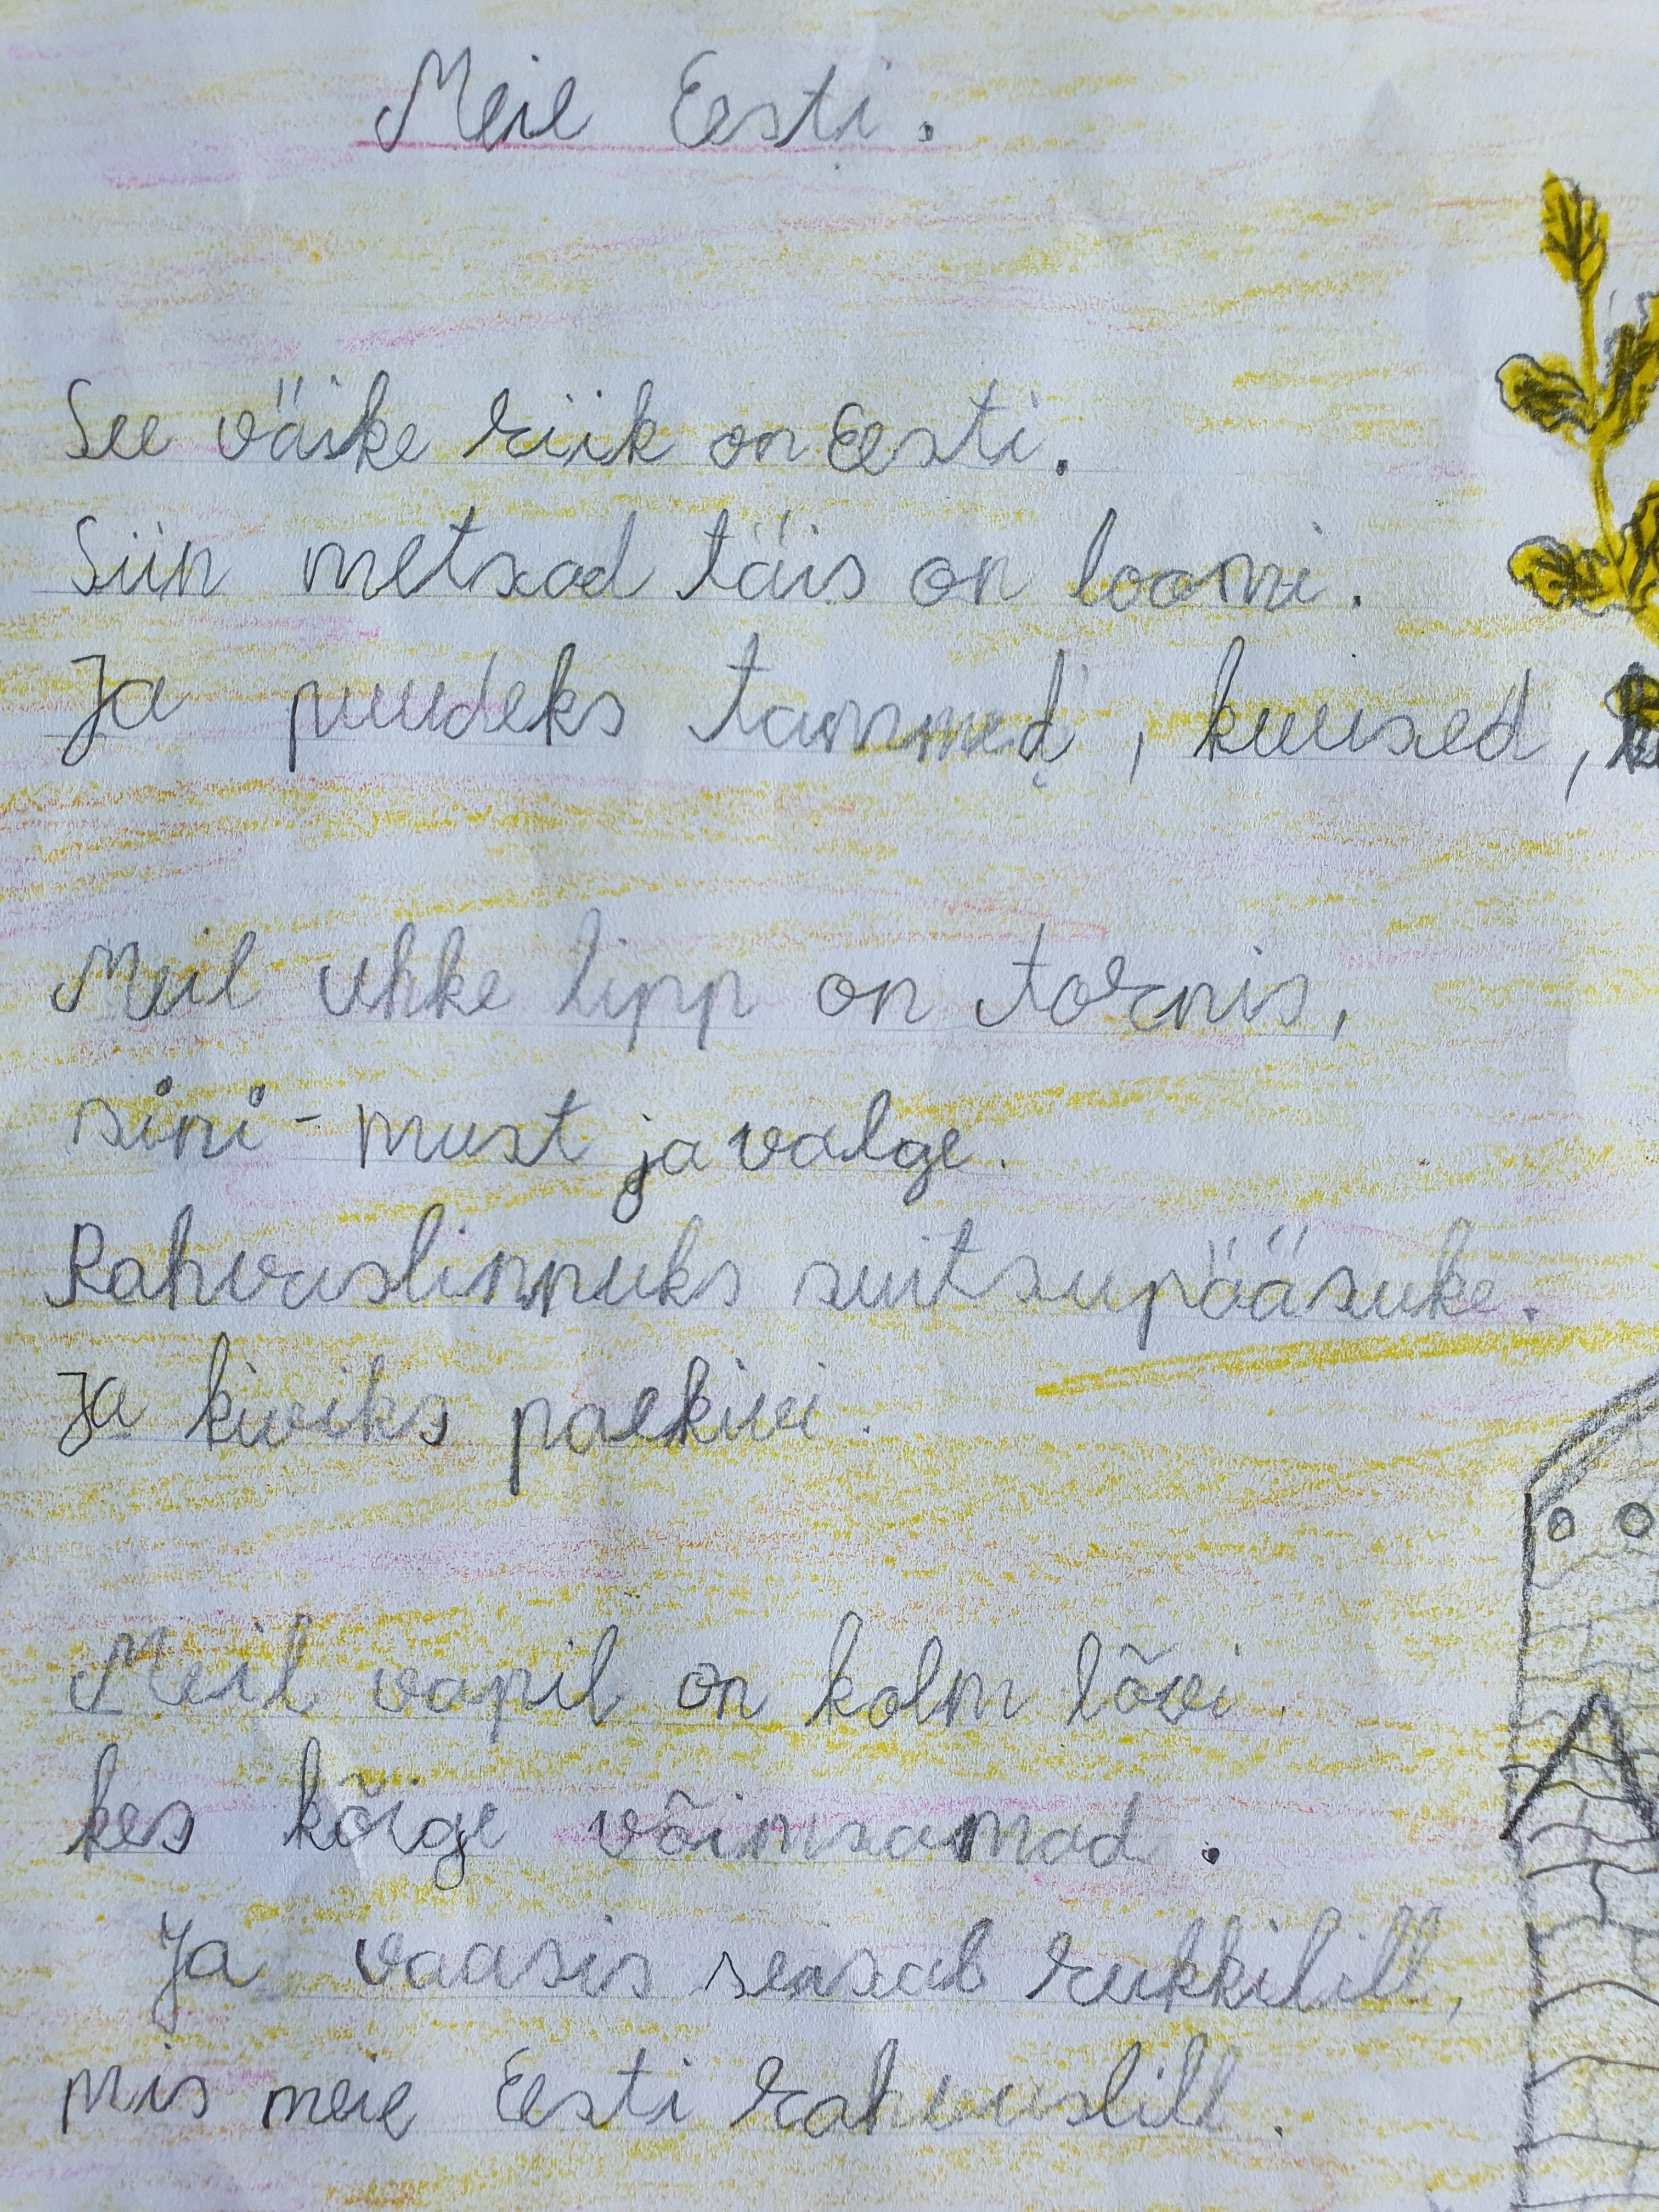 Meie Eesti.
See väike riik on Eesti.
Siin metsad täis on loomi.
Ja puudeks tammed, kuused,
Meil uhke lipp on tornis,
sini-must ja valge.
Rahvuslinnuks suitsupääsuke.
Ja kiviks paekivi.
Meil vapil on kolm lõvi.
kes kõige võimsamad.
Ja vaasis seisab rukkilill,
mis meie Eesti rahvuslill.